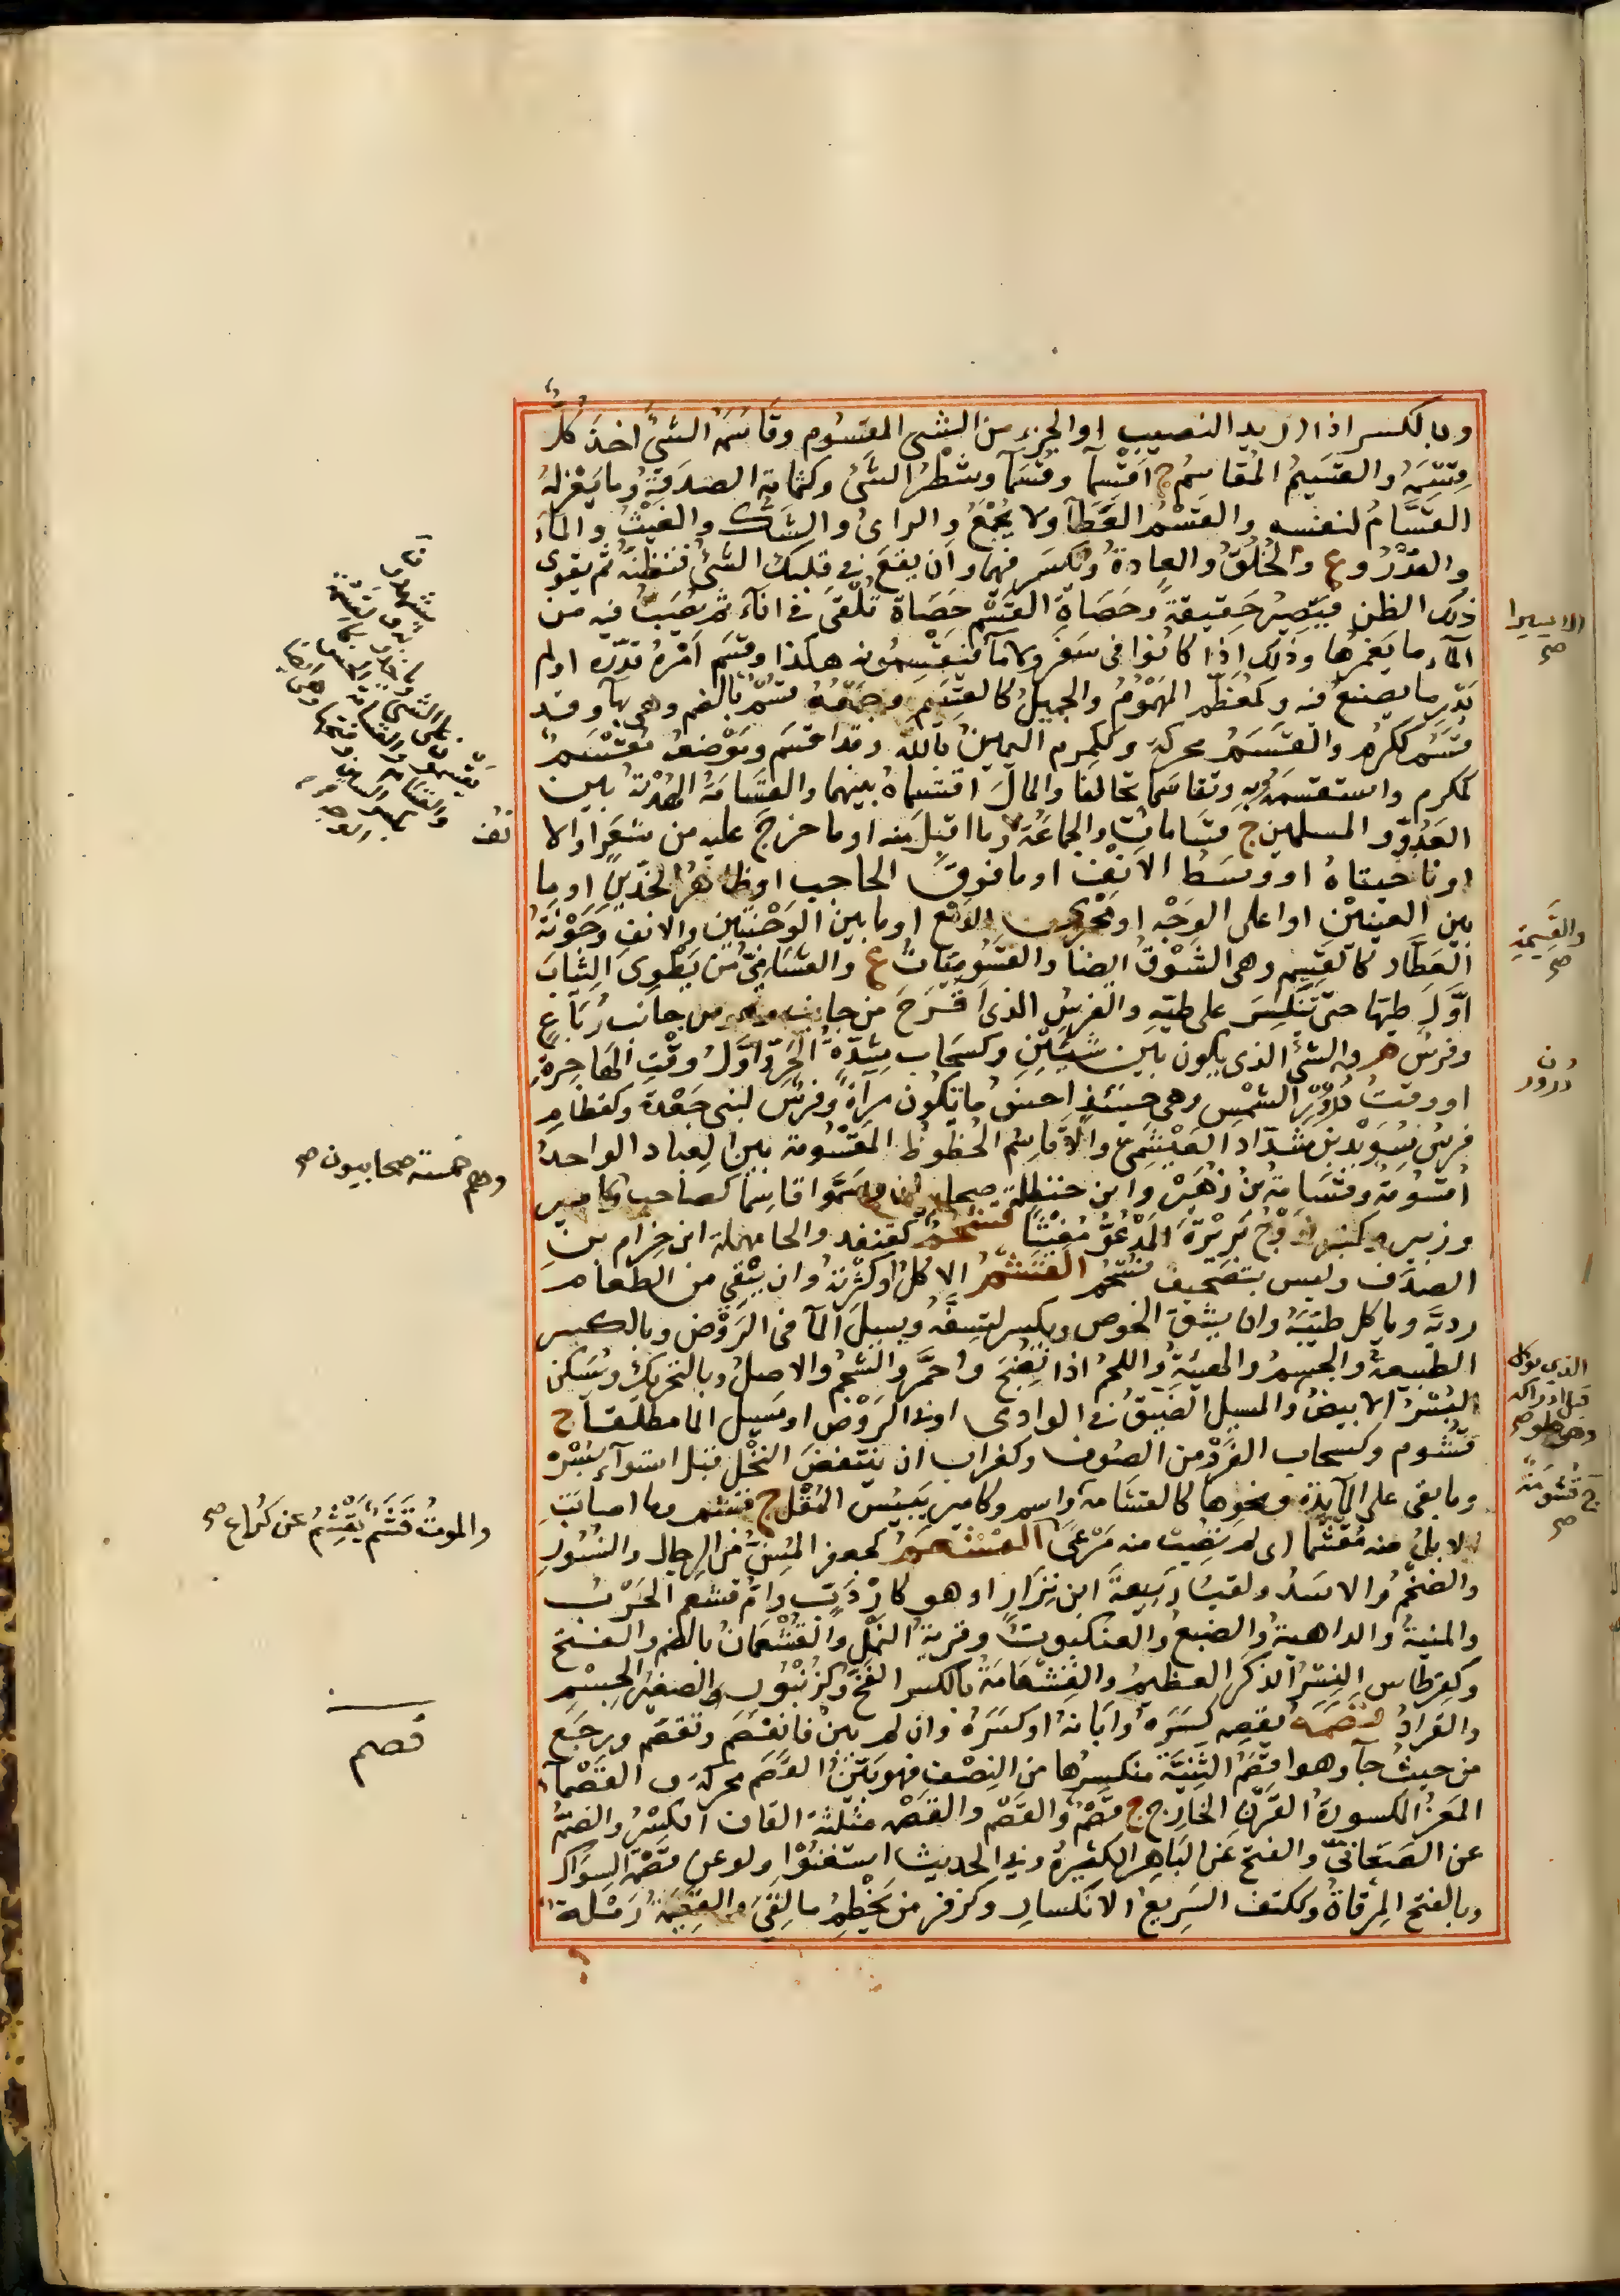 وبالكسر اذا اريد النصيب او الجزء من الشئ المقسوم وقاسَمَهُ الشئَ اخذَ كلٌّ
قِسْمَهُ والقَسِيمُ المُقاسِمُ ج اَقْسِمآءُ وقُسَمآءُ وشطْرُ الشئ وكثمامة الصدَقَةُ وما يَعْزِلهُ
القَسَّامُ لنفسه والقَسْمُ العَطآءُ ولا يُجْمَعُ والراىُ والشَكُّ والغيْثُ والمآءُ
والقَدَرُ وع والخُلُقُ والعادةُ ويُكسَر فيهما وان يقعَ فى قلبك الشئ فتظنّهُ ثم يقوى
ذلك الظن فيَصِيرُ حقيقةً وحَصاةُ القَسْم حَصَاة تُلْقَى فى اناءٍ ثم يُصَبُّ فيه من
المآء ما يَغمُرُها وذلك اذا كانُوا فى سَفَر ولا مآء فيَقْتسِمُونه هكذا وقَسَمَ اَمْرَهُ قدّره او لم
يَدْرِ ما يصنع فيه وكمُعَظّمٍ المَهْمُومُ والجميلُ كالقَسِيم وجَمْعُهُ قُسُمٌ بالضم وهى بهآء وقد
قَسُمَ ككرُم والقَسَمُ محركة وكمُكرم اليمينُ بالله وقد اقسَم ومَوْضعُهُ مُقْسَمٌ
كمُكرم واستقسَمَهُ به وتقاسَما تحالفا والمالَ اقتَسماهُ بينهما والقَسَامَةُ الهُدْنةُ بين
العَدُوِّ والمسلمين ج قَسَاماتٌ والجماعَةُ وما اقبلَ منه او ما خرجَ عليه من شَعَرٍ او الا
او ناحيتاهُ او وسَطُ الانْف او ما فوقَ الحاجب او ظاهرُ الخدّينِ او ما
بين العينيْنِ او اعلى الوَجْه او مَجْرَى الدّمْع او ما بين الوَجْنَتَيْنِ والانفِ وجَوْنةُ
العَطَّار كالقَسِيم وهى السُّوْقُ ايضًا والقَسُومِيَّاتُ ع والقَسَامِىُّ من يَطْوِى الثِيابَ
اوّلَ طيّها حتى تنكسِرَ على طيّهِ والفرس الذى اَقْرَحَ من جانب وهو من جانب رَبَاعٍ
وفرسٌ م والشئُ الذى يكون بين شيئينِ وكسَحَاب شِدَّةُ الحَرّ واوّلُ وقْتِ الهاجِرةِ
او وقتُ ذُرُوْرِ الشمْسِ وهى حينئذٍ احسنُ ما تكُون مِراٰةً وفرسٌ لبنى جَعْدةَ وكقَطامِ
فرسُ سُوَيْدِ بن شدّاد العبْشَمِىّ والاَقاسِيْمُ الحُظُوظُ المَقْسُومة بين العِباد الواحدُ
اُقسُومةٌ وقَسَامةُ بنُ زُهَيْرٍ وابن حنظلة صحابيان وسَمَّوا قاسِمًا كصاحب وكاميرٍ
وزبير زَوْجُ بَرِيْرَةَ المَدْعُوُّ مُغيْثًا قشحم كقنفد والحا مهملة ابن خزام بن
الصدَف وليس بتصحيف قشحم القَشْمُ الاكلُ او كثرتُهُ وان يَنْقِى من الطعام
رديَّه ويأكل طيّبَهُ وان يشُقَّ الخوصَ ويكسر لتَسِفَّهُ ومسيلُ المآء فى الرَّوْض وبالكسر
الطبيعةُ والجسمُ والهَيْئةُ واللحمُ اذا نَضِجَ واحْمَرَّ والشحمُ والاصلُ وبالتحريك ويُسكّن
البُسْرُ الابيضُ والمسيل الضيّقُ فى الوادى اوفى الرَوْضِ او مَسيلُ الما مطلقا ج
قُشُوم وكسَحاب القَرَدُ من الصوف وكغراب ان يَنتفضَ النخْل قبل استوآء بُسْرِه
وما بقى على المآيدة ونحوها كالقُشَامة واسم وكامير يَبيسُ البَقْل ج قُشُم وما اصابَتِ
الابلُ منه مُقَشَّما اى لم تُصِبْ منه مَرْعًى القَشْعَمُ كجعفر المُسِنُّ من الرجال والنُسُور
والضخْمُ والاسدُ ولقبُ رَبيعةَ ابن نِزَارٍ او هو كارْدَبٍّ واُمُّ قشعم الحَرْبُ
والمنيةُ والداهيةُ والضبعُ والعنكبوتُ وقريةُ النمل والقُشْعُمان بالضم والفتح
وكقِرطاس النِسْرُ الذكرُ العظيمُ والقِشْعَامَةُ بالكسر الفَخّ وكزُنْبُور الصغيرُ الجِسْمِ
والقراد قَصَمَهُ يقصِمه كسَرَهُ واَبَانهُ او كسَرَهُ وان لم يَبِنْ فانقَصَمَ وتقصّم ورجَع
من حيثُ جآ وهو اقصَمُ الثنيّة منكسِرُها من النِصْفِ فهو بَيّنُ القَصَم محركة والقَصْمآءُ
المَعزُ المكسورةُ القَرْنِ الخارج ج قُصْمٌ والقَصْمُ والقصمة مثلثة القاف الكِسْرُ والضمُّ
عن الصَغانىّ والفتح عن الباهر الكسرةُ وفى الحديث استغنُوْا ولو عن قِصْمَةِ السِوَاكِ
وبالفتح المِرْقاةُ وككتف السَرِيع الانكسارِ وكزفر من يَحْطِمُ ما لقِىَ والقَصِيمَةُ رَمْلة
الا يسيرا صح
والقَسِيْمَةِ صح
ذرور
وهم خمسة صحابيون صح
الذى يوكل
قبل ادراكه
وهو حلو صح
ج قُشُومةٌ صح
والموتُ قَشَمَ يَقْشِمُ عن كُراع صح
نف
قصم